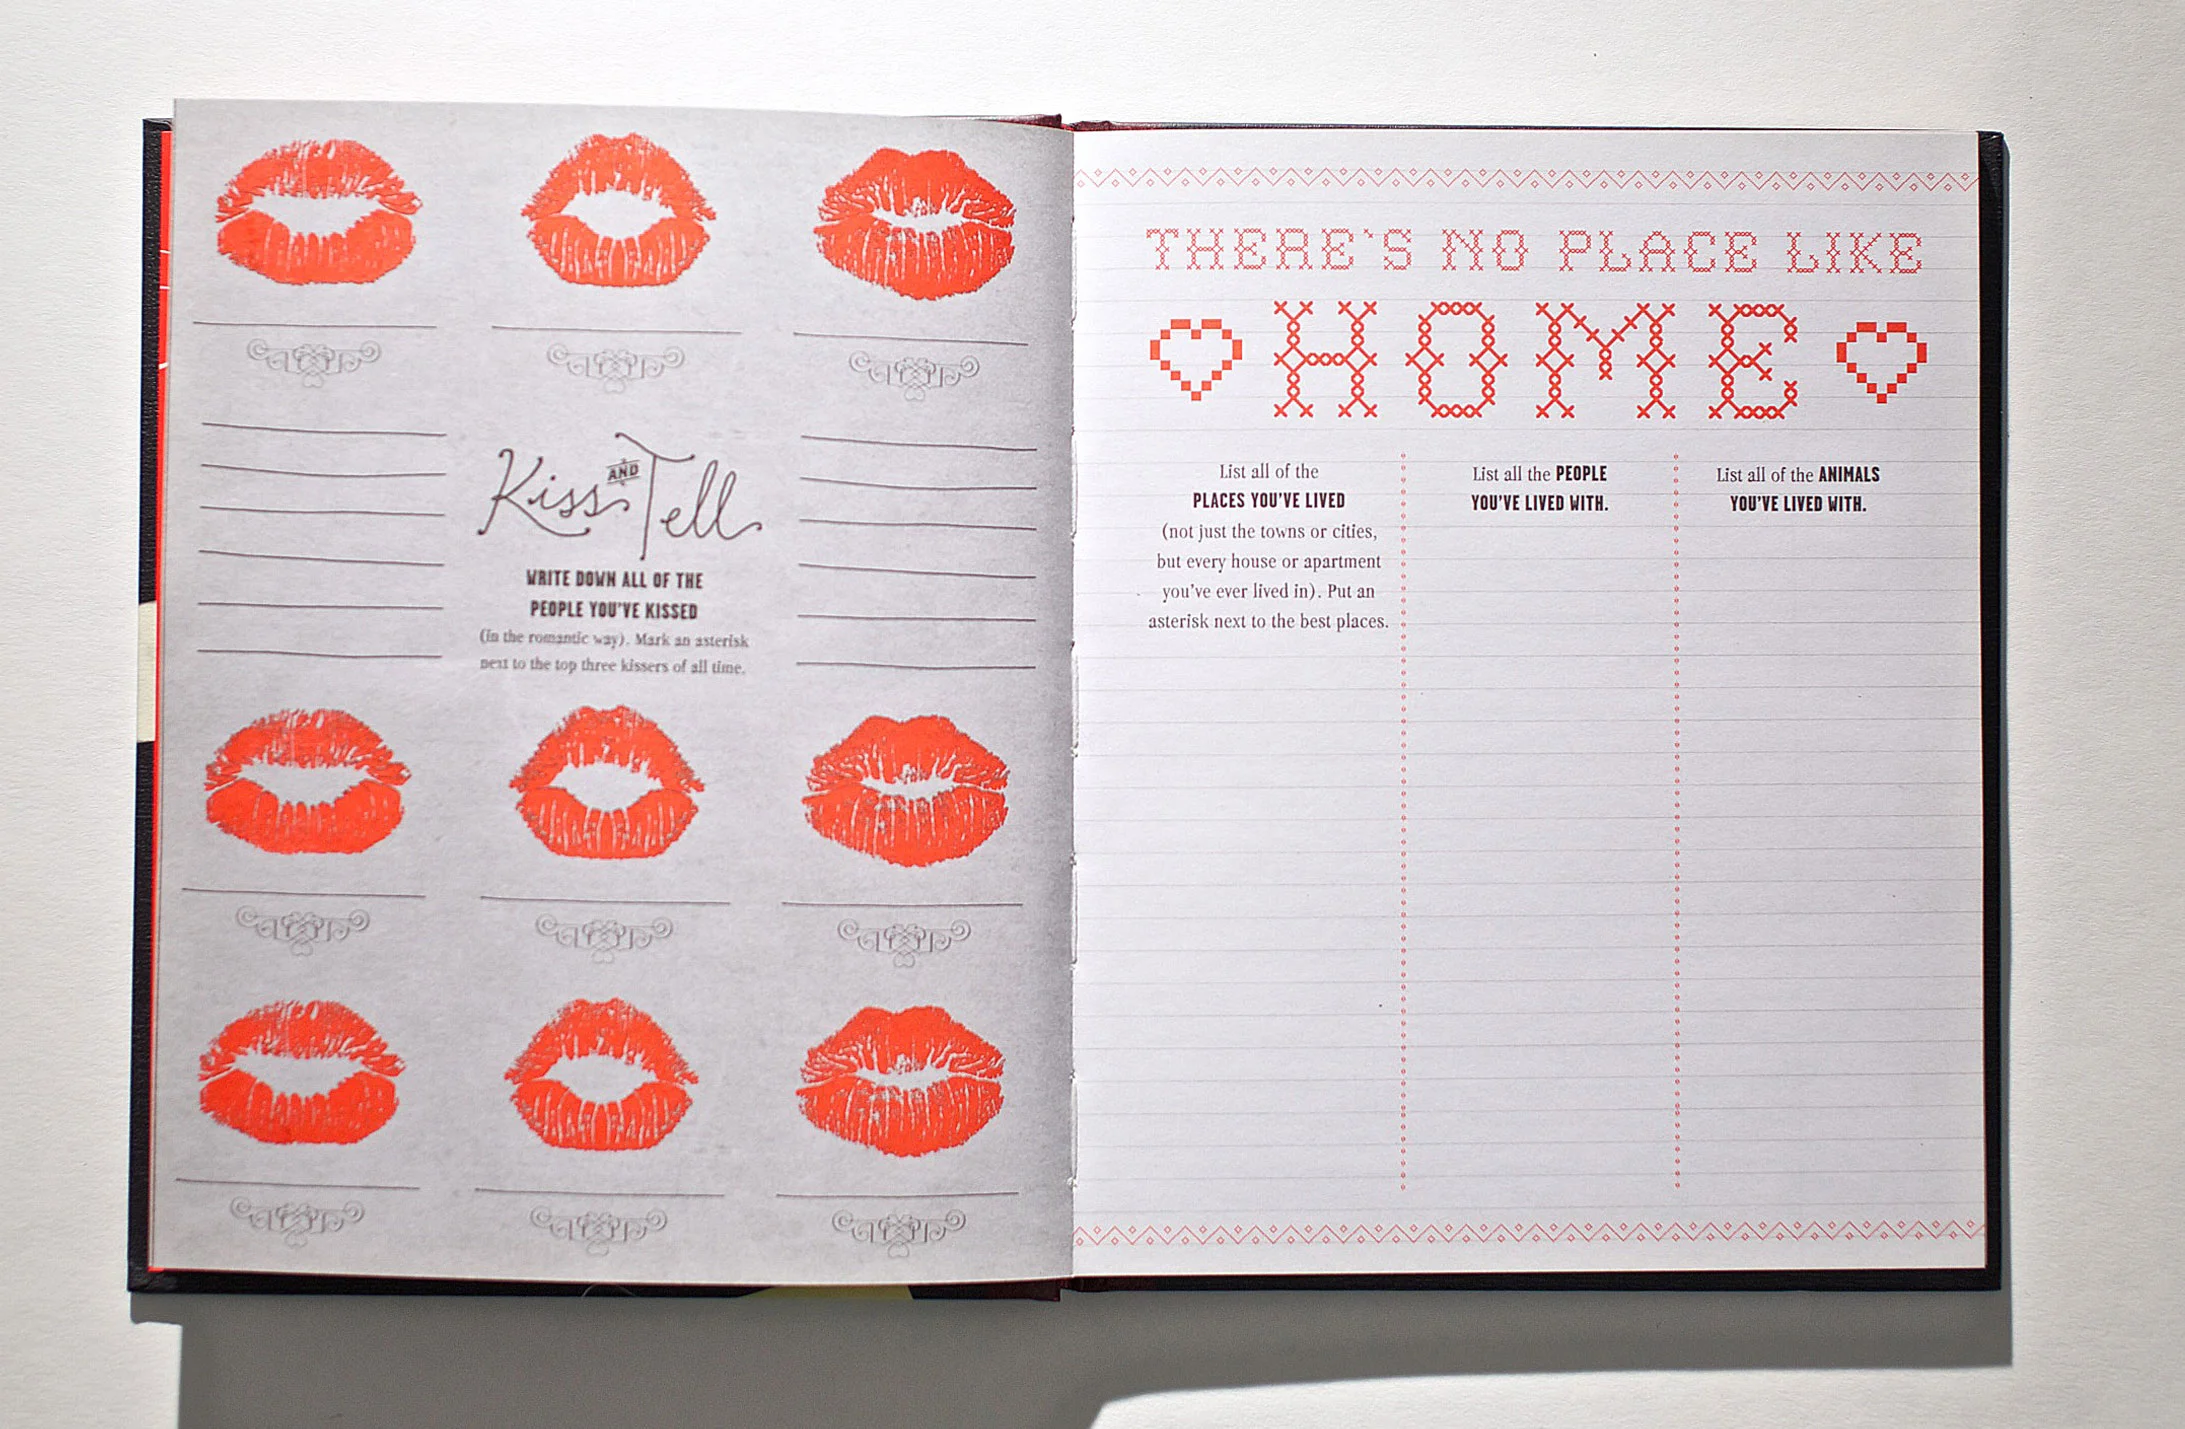 Kiss AND Tell
WRITE DOWN ALL OF THE
PEOPLE YOU'VE KISSED
(in the romantic way). Mark an asterisk
next to the top three kissers of all time.
THERE'S NO PLACE LIKE
HOME
List all of the
PLACES YOU'VE LIVED
(not just the towns or cities,
but every house or apartment
you've ever lived in). Put an
asterisk next to the best places.
List all the PEOPLE
YOU'VE LIVED WITH.
List all of the ANIMALS
YOU'VE LIVED WITH.